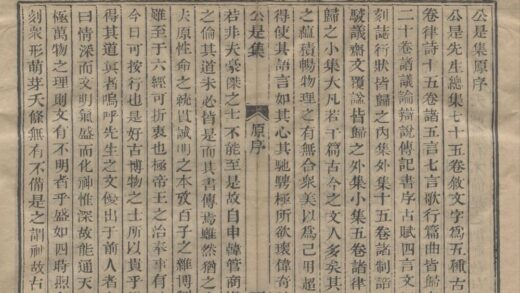 公是集原序
公是先生總集七十五卷敘文字為五種古
卷律詩十五卷諸五言七言歌行篇曲皆歸
二十卷諸議論辯說傳記書序古賦四言文
刻誌行狀皆歸之內集外集十五卷諸制誥
駁議齋文覆諡皆歸之外集小集五卷諸律
歸之小集大凡若干篇古今之文人多矣其
之蘊積暢物理之有無合衆美以為己用超
得使其語言如其心其馳騁極所欲瓌偉奇
公是集 原序
若非天豪傑之士不能至是故自申韓管商
之倫其道未必皆是而其書傳焉雖然猶之
夫原性命之統貫誠明之本攷百子之雜博
雖至于六經可折衷也極帝王之治奉事有
今日可按行也是好古博物之士所以貴乎
得其道與者嗚呼先生之文出于前人者
曰情深而文明氣盛而化神惟深故能通天
極萬物之理則文有不明者乎盛如四時煦
刻衆形萌芽夭條無有不備是之謂神故古